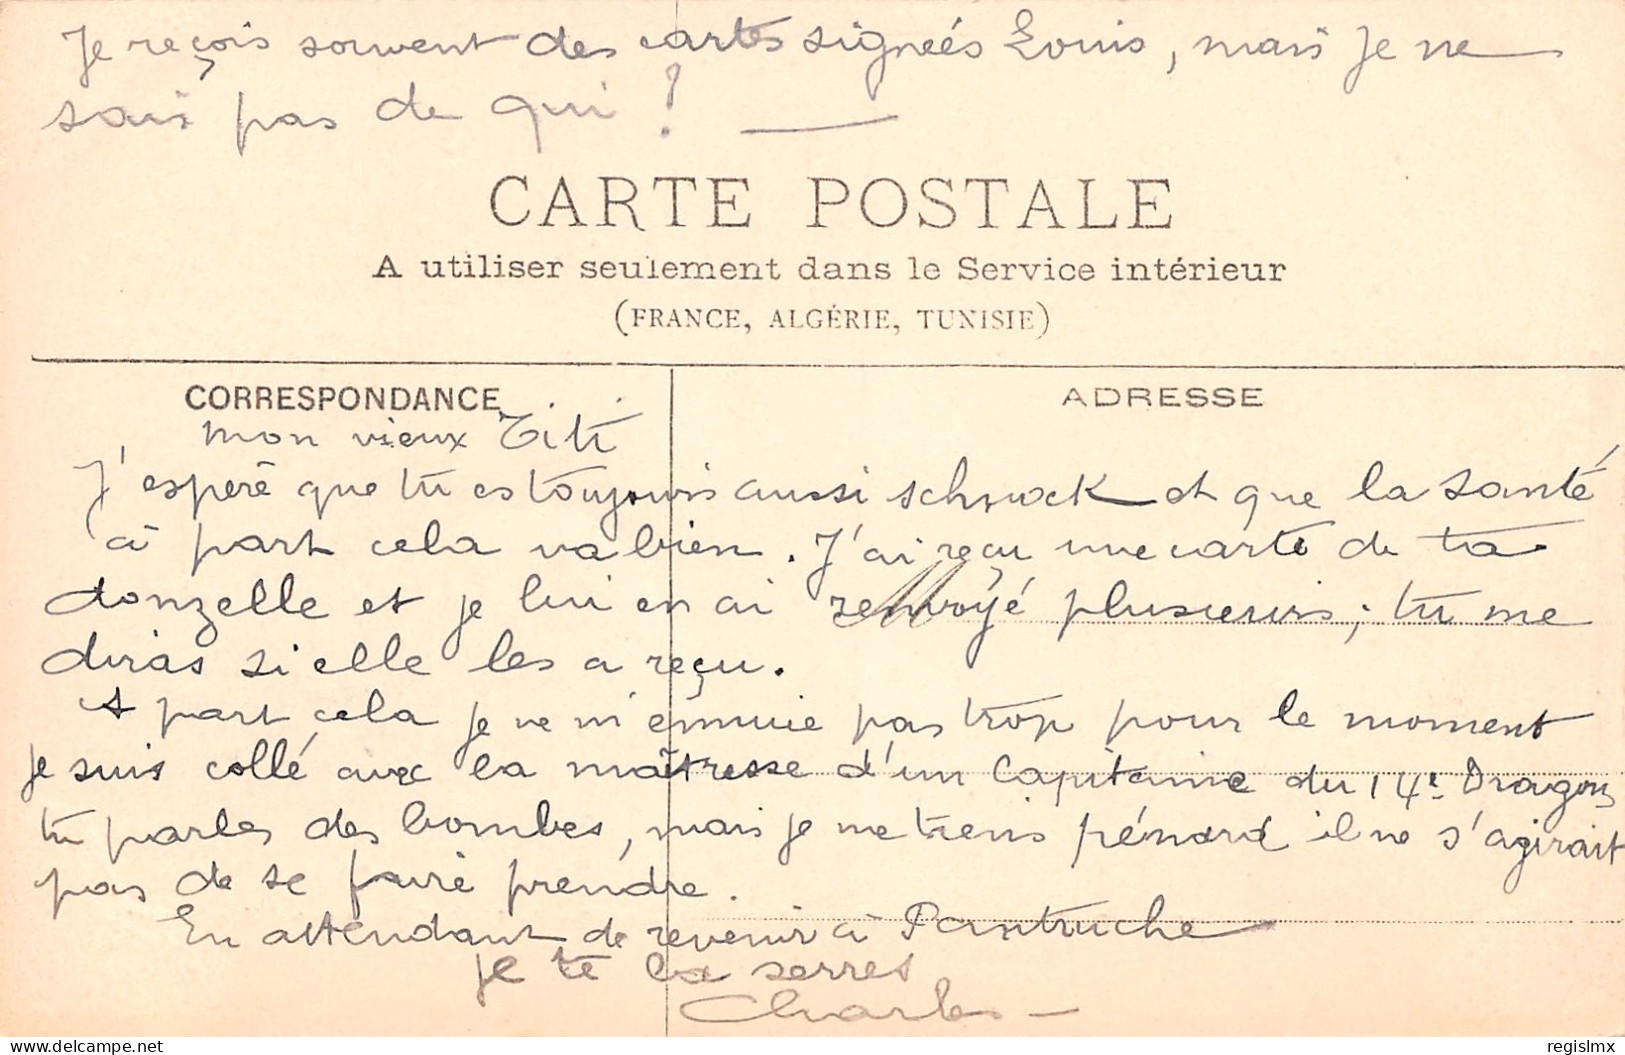 Je reçois souvent des cartes signées Louis, mais je ne
sais pas de qui ?
CARTE POSTALE
A utiliser seulement dans le Service intérieur
(FRANCE, ALGÉRIE, TUNISIE)
CORRESPONDANCE
ADRESSE
mon vieux Titi
J'espère que tu es toujours aussi schnock et que la santé
à part cela va bien. J'ai reçu une carte de ta
donzelle et je lui en ai renvoyé plusieurs ; tu me
diras si elle les a reçu.
A part cela je ne m'ennuie pas trop pour le moment
je suis collé avec la maîtresse d'un Capitaine du 14e Dragons
tu parles des bombes, mais je me tiens pénard il ne s'agirait
pas de se faire prendre.
En attendant de revenir à Pantruche
je te la serres
Charles
delcampe.net
regislmx